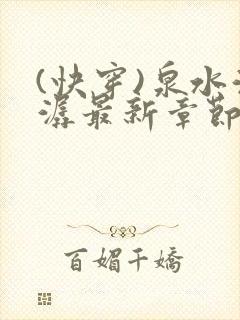 (快穿)泉水
潺最新章節
百媚千嬌